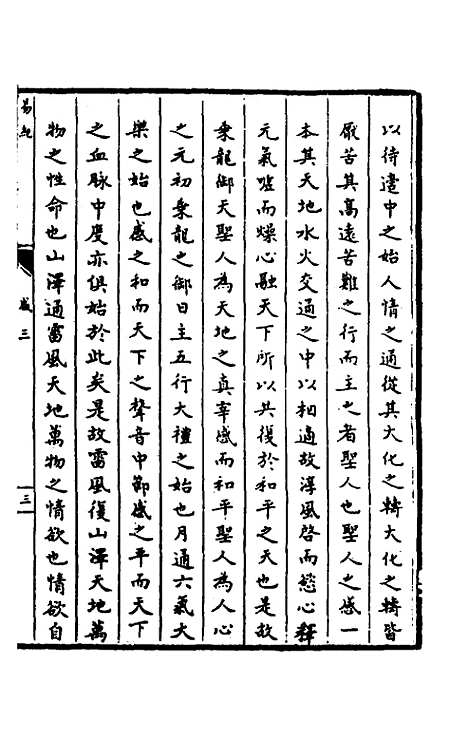 以待遣中之始人情之通從其大化之轉大化之轉皆
厭苦其高遠苦難之行而主之者聖人也聖人之感一
本其天地水火交通之中以相適故淳風啓而慾心釋
元氣噓而燥心融天下所以共復於和平之天也是故
乗龍御天聖人為天地之真宰感而和平聖人為人心
之元初乗龍之御日主五行大禮之始也月通六氣大
樂之始也感之和而天下之聲音中節感之平而天下
之血脉中度亦俱始於此矣是故雷風復山澤天地萬
物之性命也山澤通雷風天地萬物之情欲也情欲自
易
咸三
三